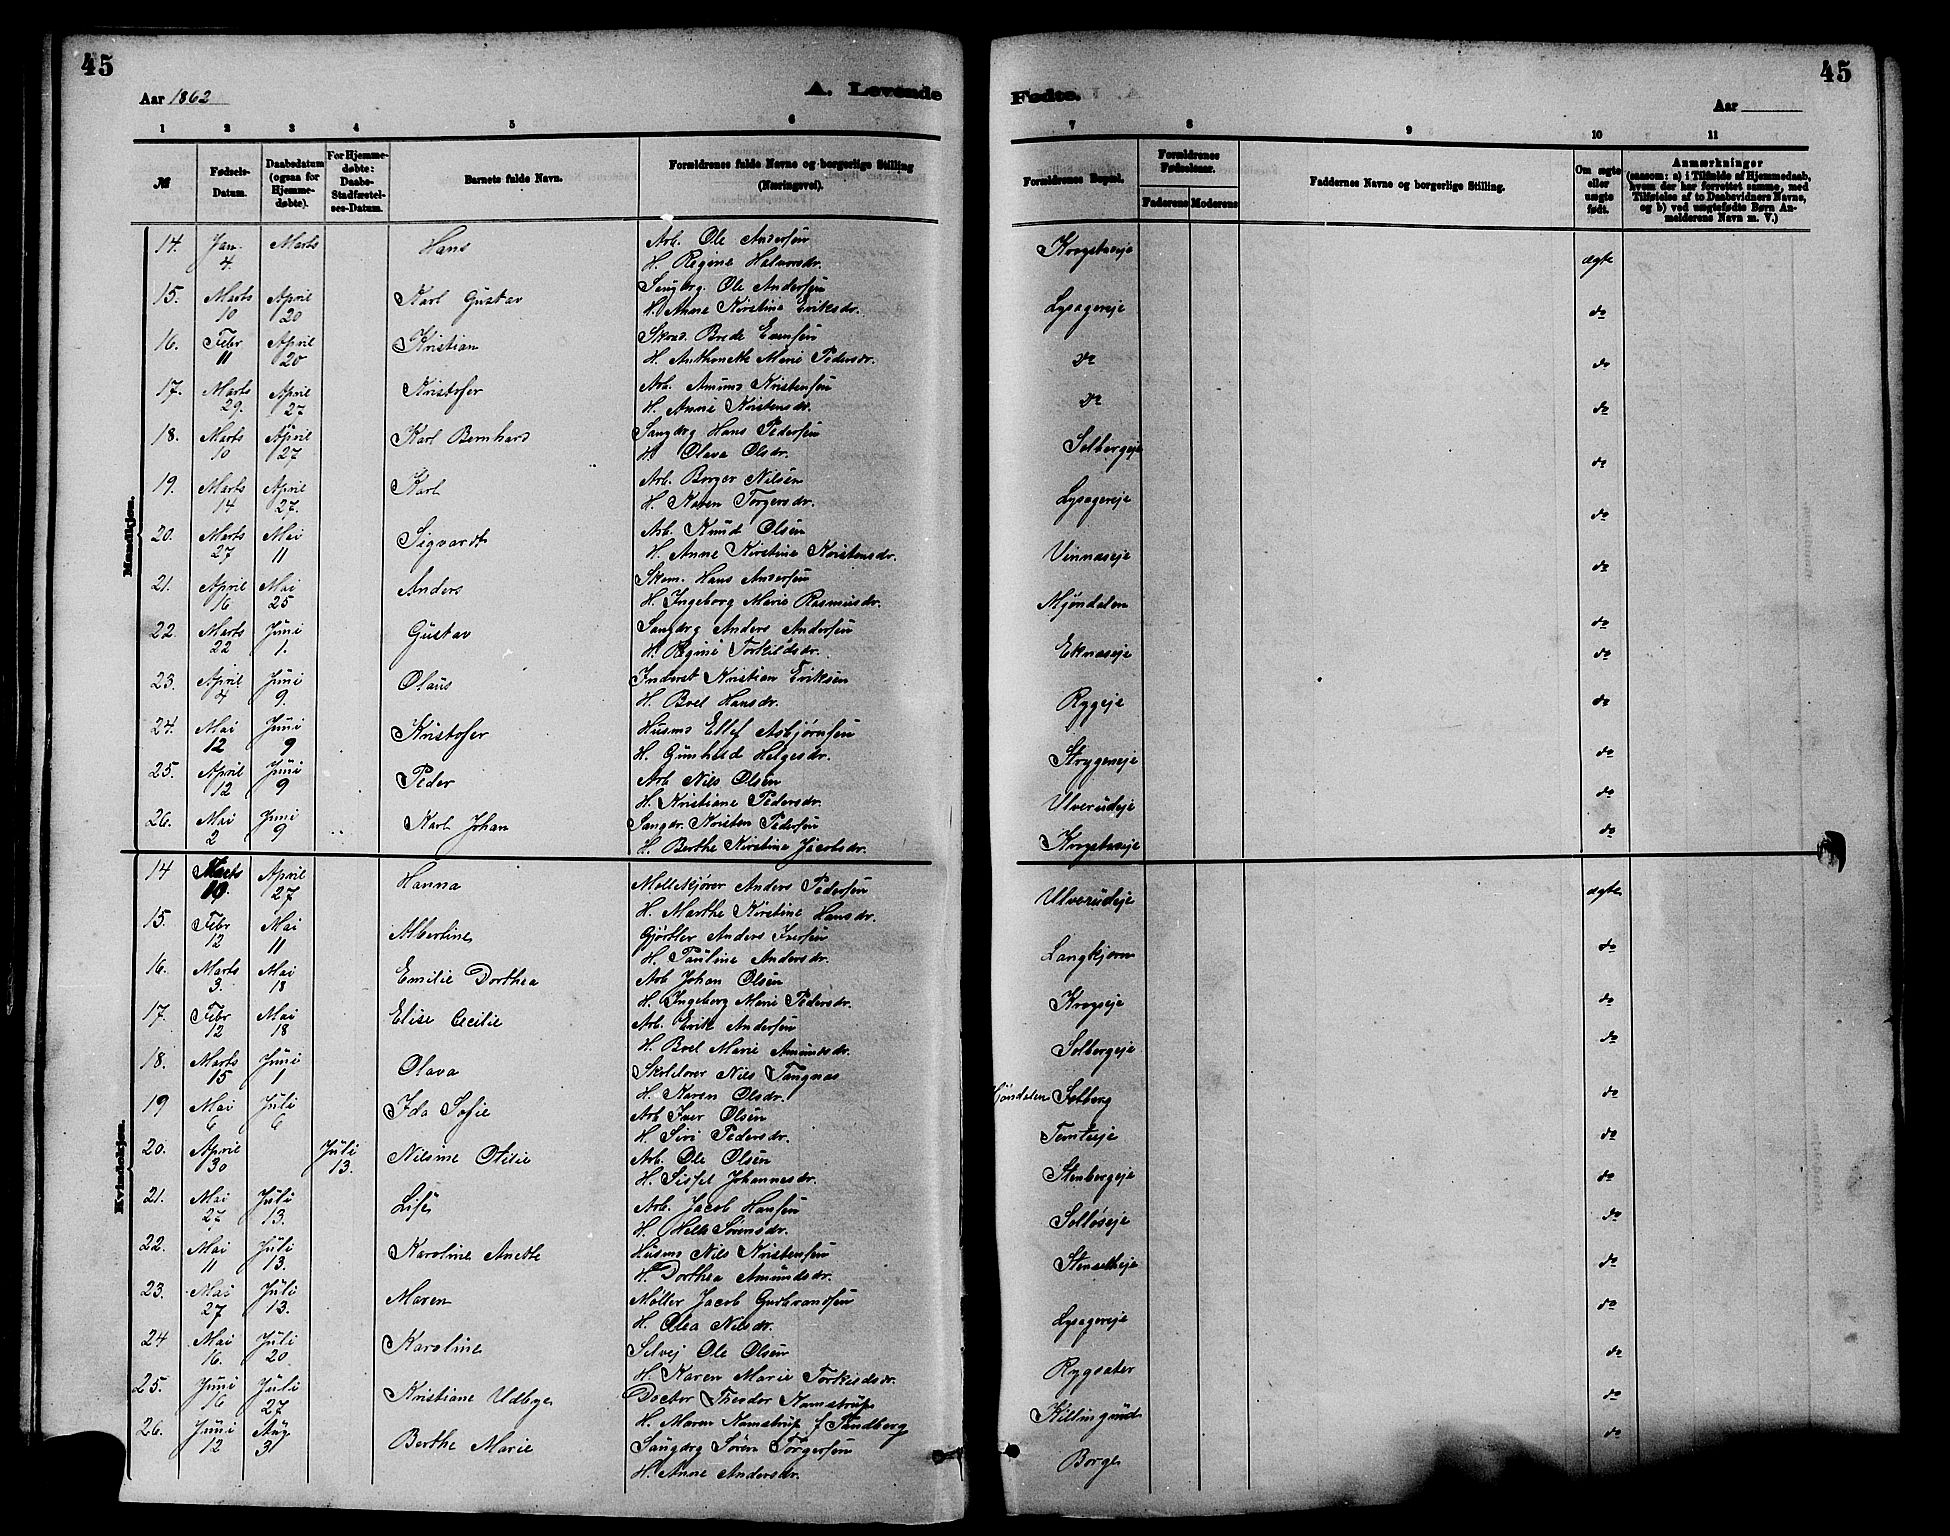 45
Aar 1862
A. Levende
1 2 3 4 5 6
№
Fødsels-Datum.
Daabsdatum (ogsaa for Hjemmedøbte).
For Hjemmedøbte: Daabs-Stadfæstelses-Datum.
Barnets fulde Navn.
Forældrenes fulde Navne og borgerlige Stilling (Næringsvei).
Mandkjøn.
14. Jan. 4. Marts Hans Arb. Ole Andersen
H. Regine Halvorsdr.
15. Marts 10 April 20 Karl Gustav Sangarg. Ole Andersen
H. Anne Kirstine Eriksdr.
16. Febr 11 April 20 Kristian Skrad. Brede Evensen
H. Anthonette Marie Pedersdr.
17. Marts 29. April 27 Kristofer Arb. Amund Kristensen
H. Anne Kristensdr.
18. Marts 10 April 27 Karl Bernhard Sangarg Hans Pedersen
H. Olava Olsdr.
19. Marts 14 April 27. Karl Arb. Borger Nilsen
H. Karen Torgersdr.
20. Marts 27 Mai 11 Sigvardt Arb. Knud Olsen
H. Anne Kirstine Kristensdr.
21. April 16 Mai 25 Anders Skom. Hans Andersen
H. Ingeborg Marie Rasmusdr.
22 Marts 22 Juni 1. Gustav Sangarg Anders Andersen
H. Regine Torkildsdr.
23. April 4 Juni 9. Olaus Inderst Kristian Eriksen
H. Boel Hansdr.
24. Mai 12 Juni 9 Kristofer Husmd Ellef Asbjørnsen
H. Gunhild Helgesdr.
25. April 12 Juni 9 Peder Arb Nils Olsen
H. Kristiane Pedersdr.
26. Mai 2 Juni 9 Karl Johan Sangar. Kristen Pedersen
H. Berthe Kirstine Jacobsdr.
Kvindekjøn.
14 Marts 10. April 27 Hanna Møllekjører Anders Pedersen
H. Marthe Kirstine Hansdr.
15. Febr 12 Mai 11 Albertine Gjørtler Anders Iversen
H. Pauline Andersdr.
16. Marts 3. Mai 18 Emilie Dorthea Arb Johan Olsen
H. Ingeborg Marie Pedersdr.
17. Febr 12 Mai 18 Elise Cecilie Arb. Erik Andersen
H. Boel Marie Amundsdr.
18. Marts 15 Juni 1 Olava Skolelærer Nils Tangnas
H. Karen Olsdr.
19 Mai 6 Juli 6 Ida Sofie Arb Iver Olsen
H. Siri Pedersdr.
20. April 30 Juli 13. Nilsine Otilie Arb. Ole Olsen
H. Sissel Johannesdr.
21. Mai 27 Juli 13. Lise Arb. Jacob Hansen
H. Helle Sørensdr.
22. Mai 11 Juli 13. Karoline Anette Husmd Nils Kristensen
H. Dorthea Amundsdr.
23. Mai 27 Juli 13. Maren Møller Jacob Gudbrandsen
H. Olea Nilsdr.
24 Mai 16. Juli 20 Karoline Selvej Ole Olsen
H. Karen Marie Torkildsdr.
25. Juni 16 Juli 27 Kristiane Udbye Doctor Theodor Namstrup
H. Maren Namstrup f. Sandberg
26. Juni 12 Aug 3 Berthe Marie Sangarg Søren Torgersen
H. Anne Andersdr.
Fødte.
45
Aar
7 8 9 10 11
Forældrenes Bopæl.
Forældrenes Fødselsaar.
Faderens Moderens
Faddernes Navne og borgerlige Stilling.
Om ægte eller uægte født.
Anmærkninger (saasom: a) i Tilfælde af Hjemmedaab, hvem der har forrettet samme, med Tilføielse af to Daabsvidners Navne, og b) ved uægtefødte Børn Anmelderens Navn m. V.)
Krogstadeje ægte
Lysagereje do
do do
do do
Solbergeje do
Lysagereje do
Vinnæseje do
Mjøndalen do
Eknæseje do
Ryggeje do
Strygeneje do
Ulverudeje do
Krogstadeje do
Ulverudeje ægte
Langkjørn do
Krogseje do
Solbergeje do
Mjøndalen Solberg do
Temteeje do
Stenbergeje do
Solløseje do
Stensetheje do
Lysagereje do
Rygsæter do
Killingrud do
Borge do